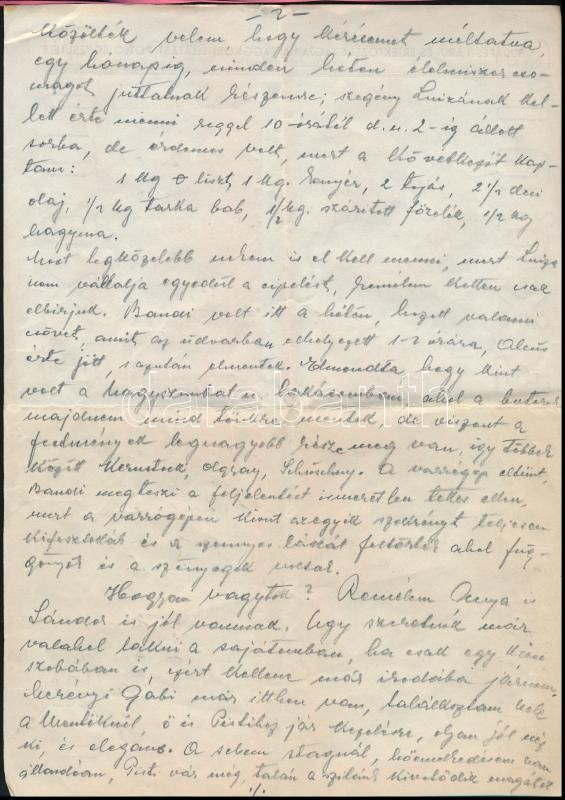 -2-
Közölték velem hogy kérésemet méltatva,
egy hónapig, minden héten élelmiszercso-
magot juttatnak részemre; szegény Luizának kel-
lett érte menni reggel 10-órától d.u. 2-ig állott
sorba, de érdemes volt, mert a következőt kap-
tam:
1 kg liszt, 1 kg. kenyér, 2 tojás, 2 1/2 deci
olaj, 1/2 kg tarka bab, 1/2 kg. szárított főzelék, 1/2 kg
hagyma.
Most legközelebb nekem is el kell menni, mert Luiza
nem vállalja egyedül a cipelést, remélem ketten csak
elbírjuk. Bandi volt itt a héten, hozott valami
szövet, amit az udvarban elhelyezett 1-2 órára,
érte jött, s azután elmentek. Elmondta, hogy kint
volt a nagyszombati lakásomban, ahol a butorok
majdnem mind tönkre mentek, de viszont a
festmények legnagyobb része meg van, így többek
között Kernstock, Olgyay, A varrógép eltünt,
Bandi megteszi a feljelentést ismeretlen tettes ellen,
mert a varrógépen kivül az egyik szekrényt teljesen
kifosztották és a szennyes ládát feltörték ahol füg-
gönyök és a szőnyegek voltak.
Hogyan vagytok? Remélem Anya is
Sándor is jól vannak. Úgy szeretnék már
valahol lakni a sajátomban, ha csak egy kicsi
szobában is, ezért kellene már irodába járnom.
Gabi már itthon van, találkoztam vele
a Mentőknél, ő is Pistihez jár kezelésre, olyan jól néz
ki, és elegáns. A sebem stagnál, hőemelkedésem van
állandóan, Pisti vár még, talán a szilánk kilökődik magától
./.
databank